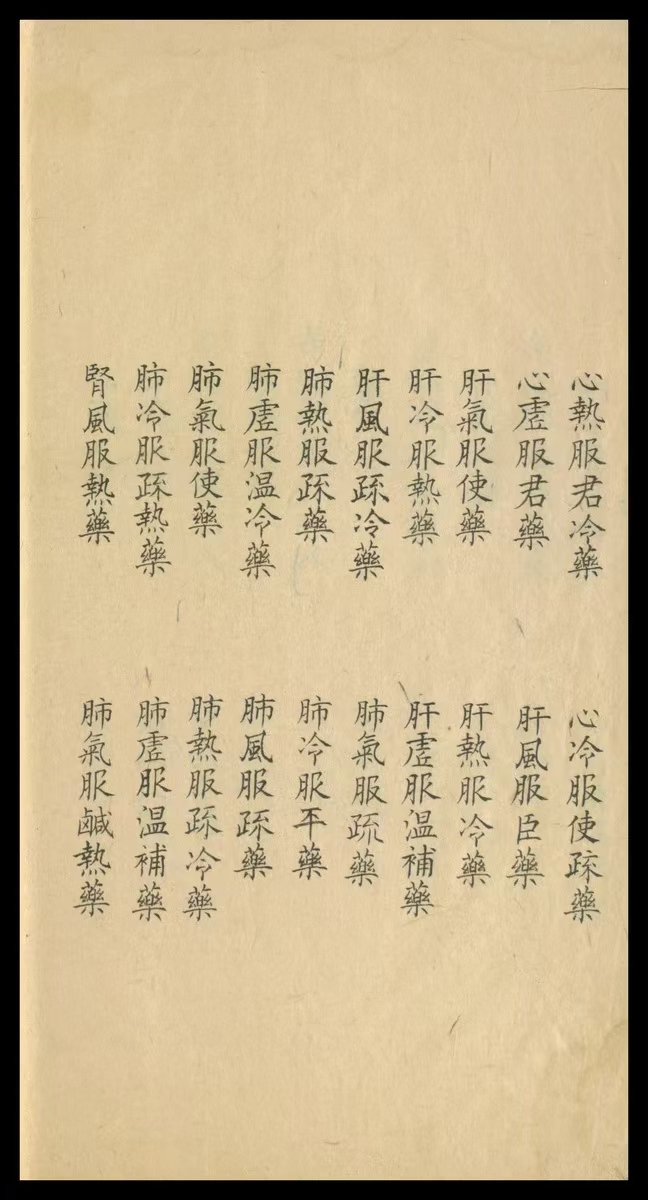 心熱服君冷藥　心冷服使疎藥
心虗服君藥　肝風服臣藥
肝氣服使藥　肝熱服冷藥
肝冷服熱藥　肝虗服温補藥
肝風服疎冷藥　肺氣服疏藥
肺熱服疎藥　肺冷服平藥
肺虗服温冷藥　肺風服疎藥
肺氣服使藥　肺熱服疎冷藥
肺冷服疎熱藥　肺虗服温補藥
腎風服熱藥　肺氣服鹹熱藥